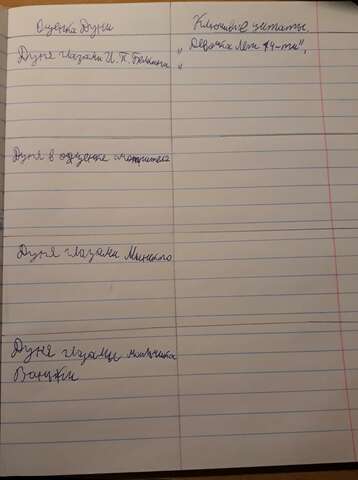 Оценка Дуни
Ключевые цитаты
Дуня глазами И.П. Белкина
„Девочка лет 14-ти",
„
Дуня в оценке смотрителя
Дуня глазами Минского
Дуня глазами мальчика
Ваньки